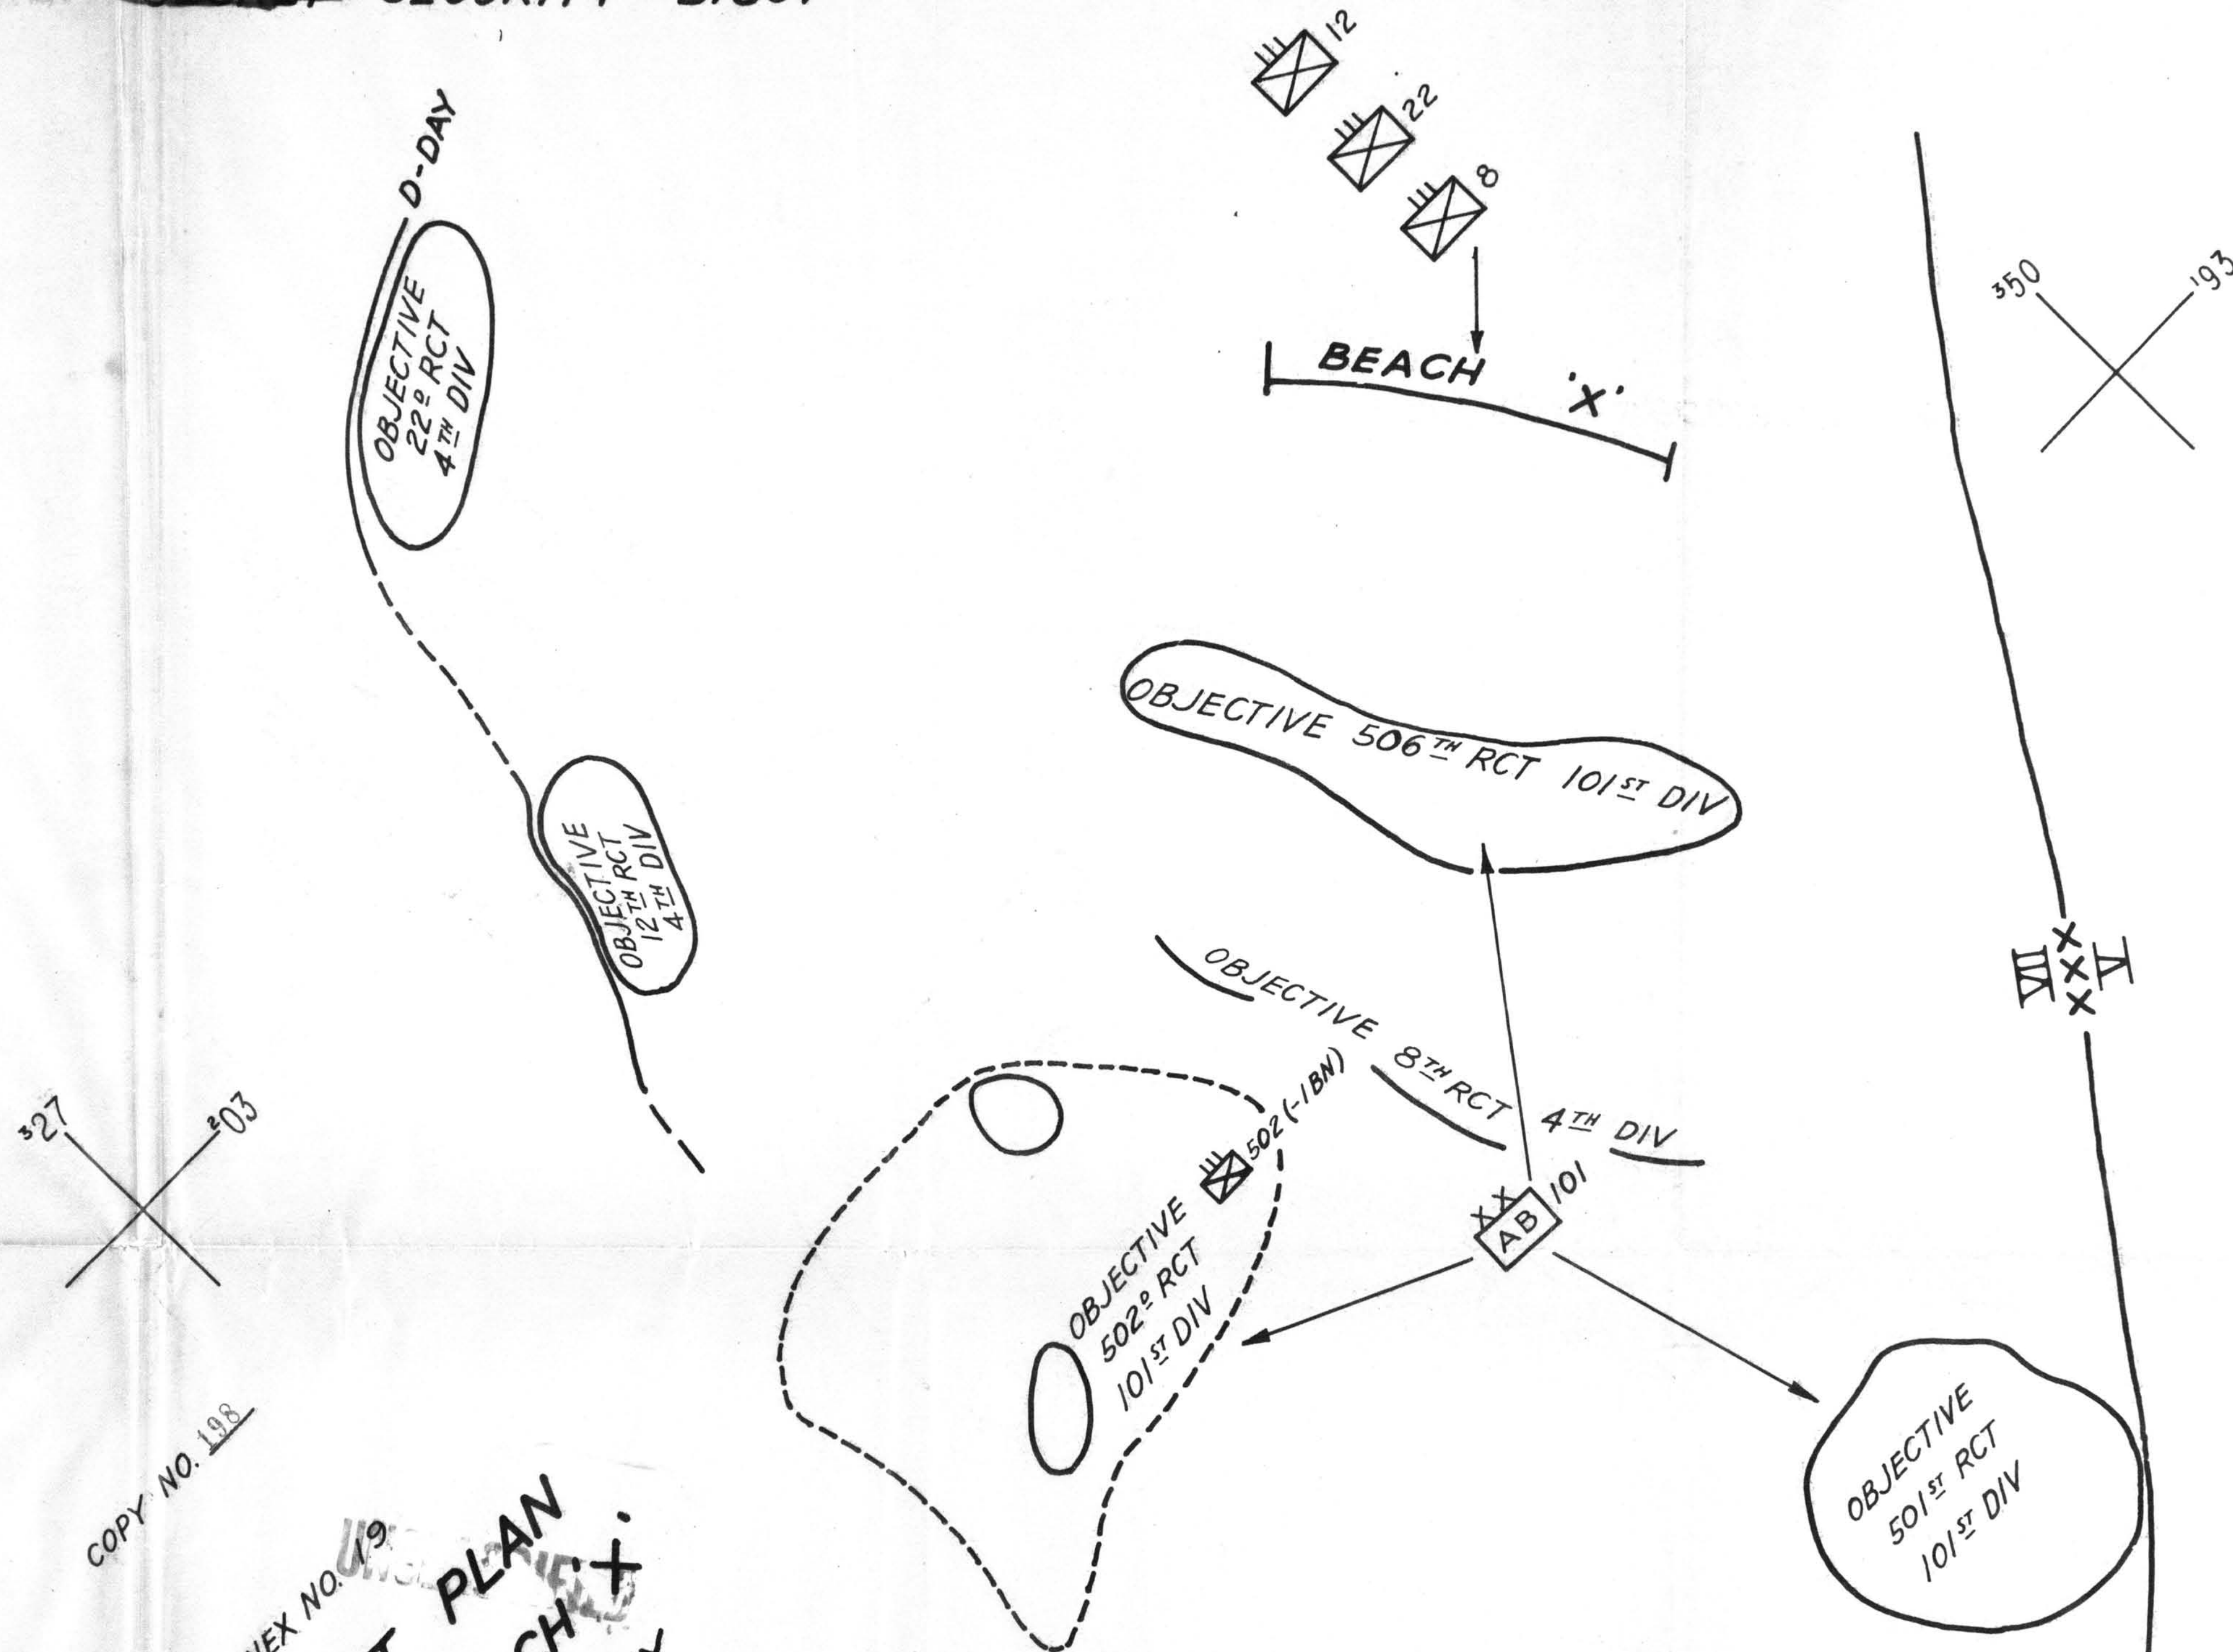 SECURITY
D-DAY
OBJECTIVE
22D RCT
4TH DIV
12
22
8
BEACH 'X'
350
193
OBJECTIVE 506TH RCT 101ST DIV
OBJECTIVE
12TH RCT
4TH DIV
OBJECTIVE 8TH RCT 4TH DIV
VII
XXX
V
327
203
502 (-1 BN)
OBJECTIVE
502D RCT
101ST DIV
XX
AB
101
OBJECTIVE
501ST RCT
101ST DIV
COPY NO. 198
NEX NO. 19
PLAN
CH 'X'